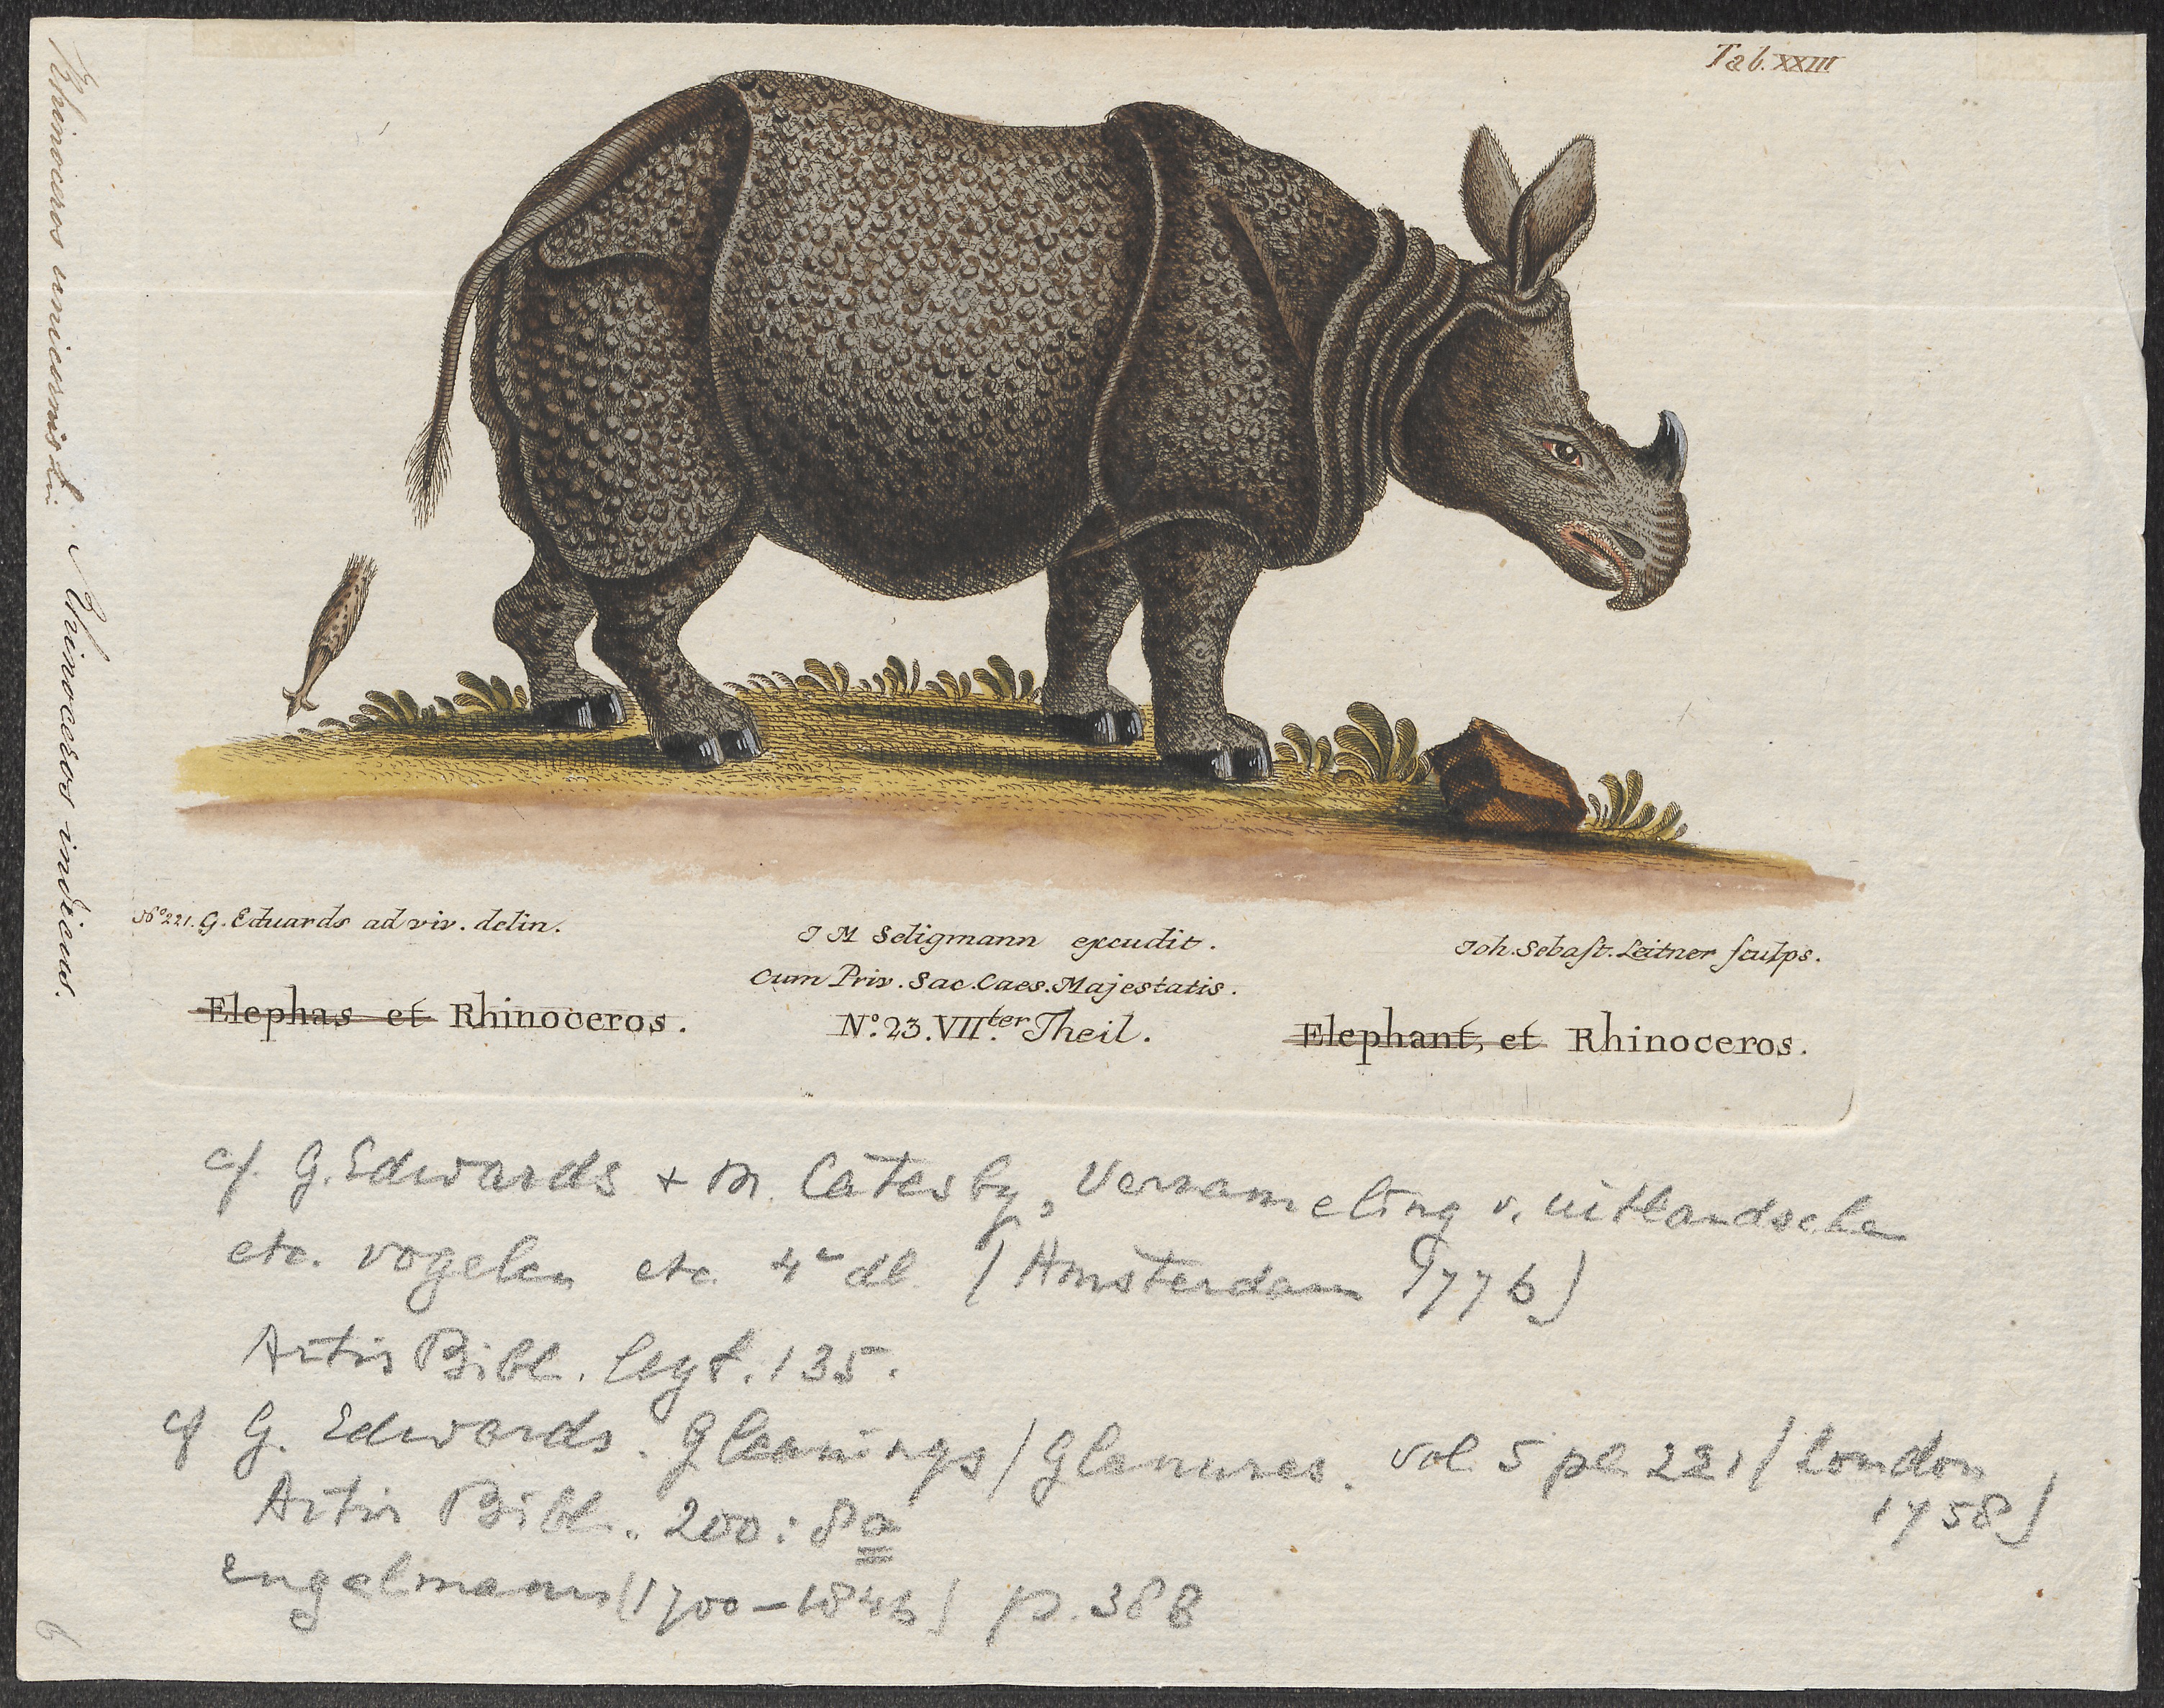 Tab. XXIII
Rhinoceros unicornis Lin. Rhinoceros indicus.
No 221. G. Eduards ad viv. delin.
J M Seligmann excudit.
Joh. Sebast. Leitner sculps.
Cum Priv. Sac. Caes. Majestatis.
Elephas et Rhinoceros.
No. 23. VIIter Theil.
Elephant, et Rhinoceros.
cf. G. Edwards + M. Catesby, Verzameling v. uitlandsche
etc. vogelen etc. 4e dl. (Amsterdam 1776)
Artis Bibl. legt. 135.
cf G. Edwards. Gleanings/Glanures. vol 5 pl 221 (London
1758)
Artis Bibl. 200: 8a
Engelmann (1700-1846) p. 388
6